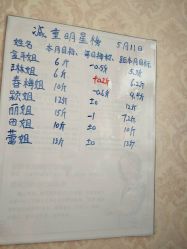 减重明星榜 5月11日
姓名 本月目标 每日海拔 距本月目标
6斤 -0.5斤 5.3斤
琳姐 6斤 +0.2斤 6.2斤
春梅姐 10斤 -0.6斤 9.4斤
颖姐 12斤 ±0 12斤
丽姐 15斤 -1 7.2斤
田姐 10斤 ±0 10斤
蕾姐 13斤 ±0 13斤